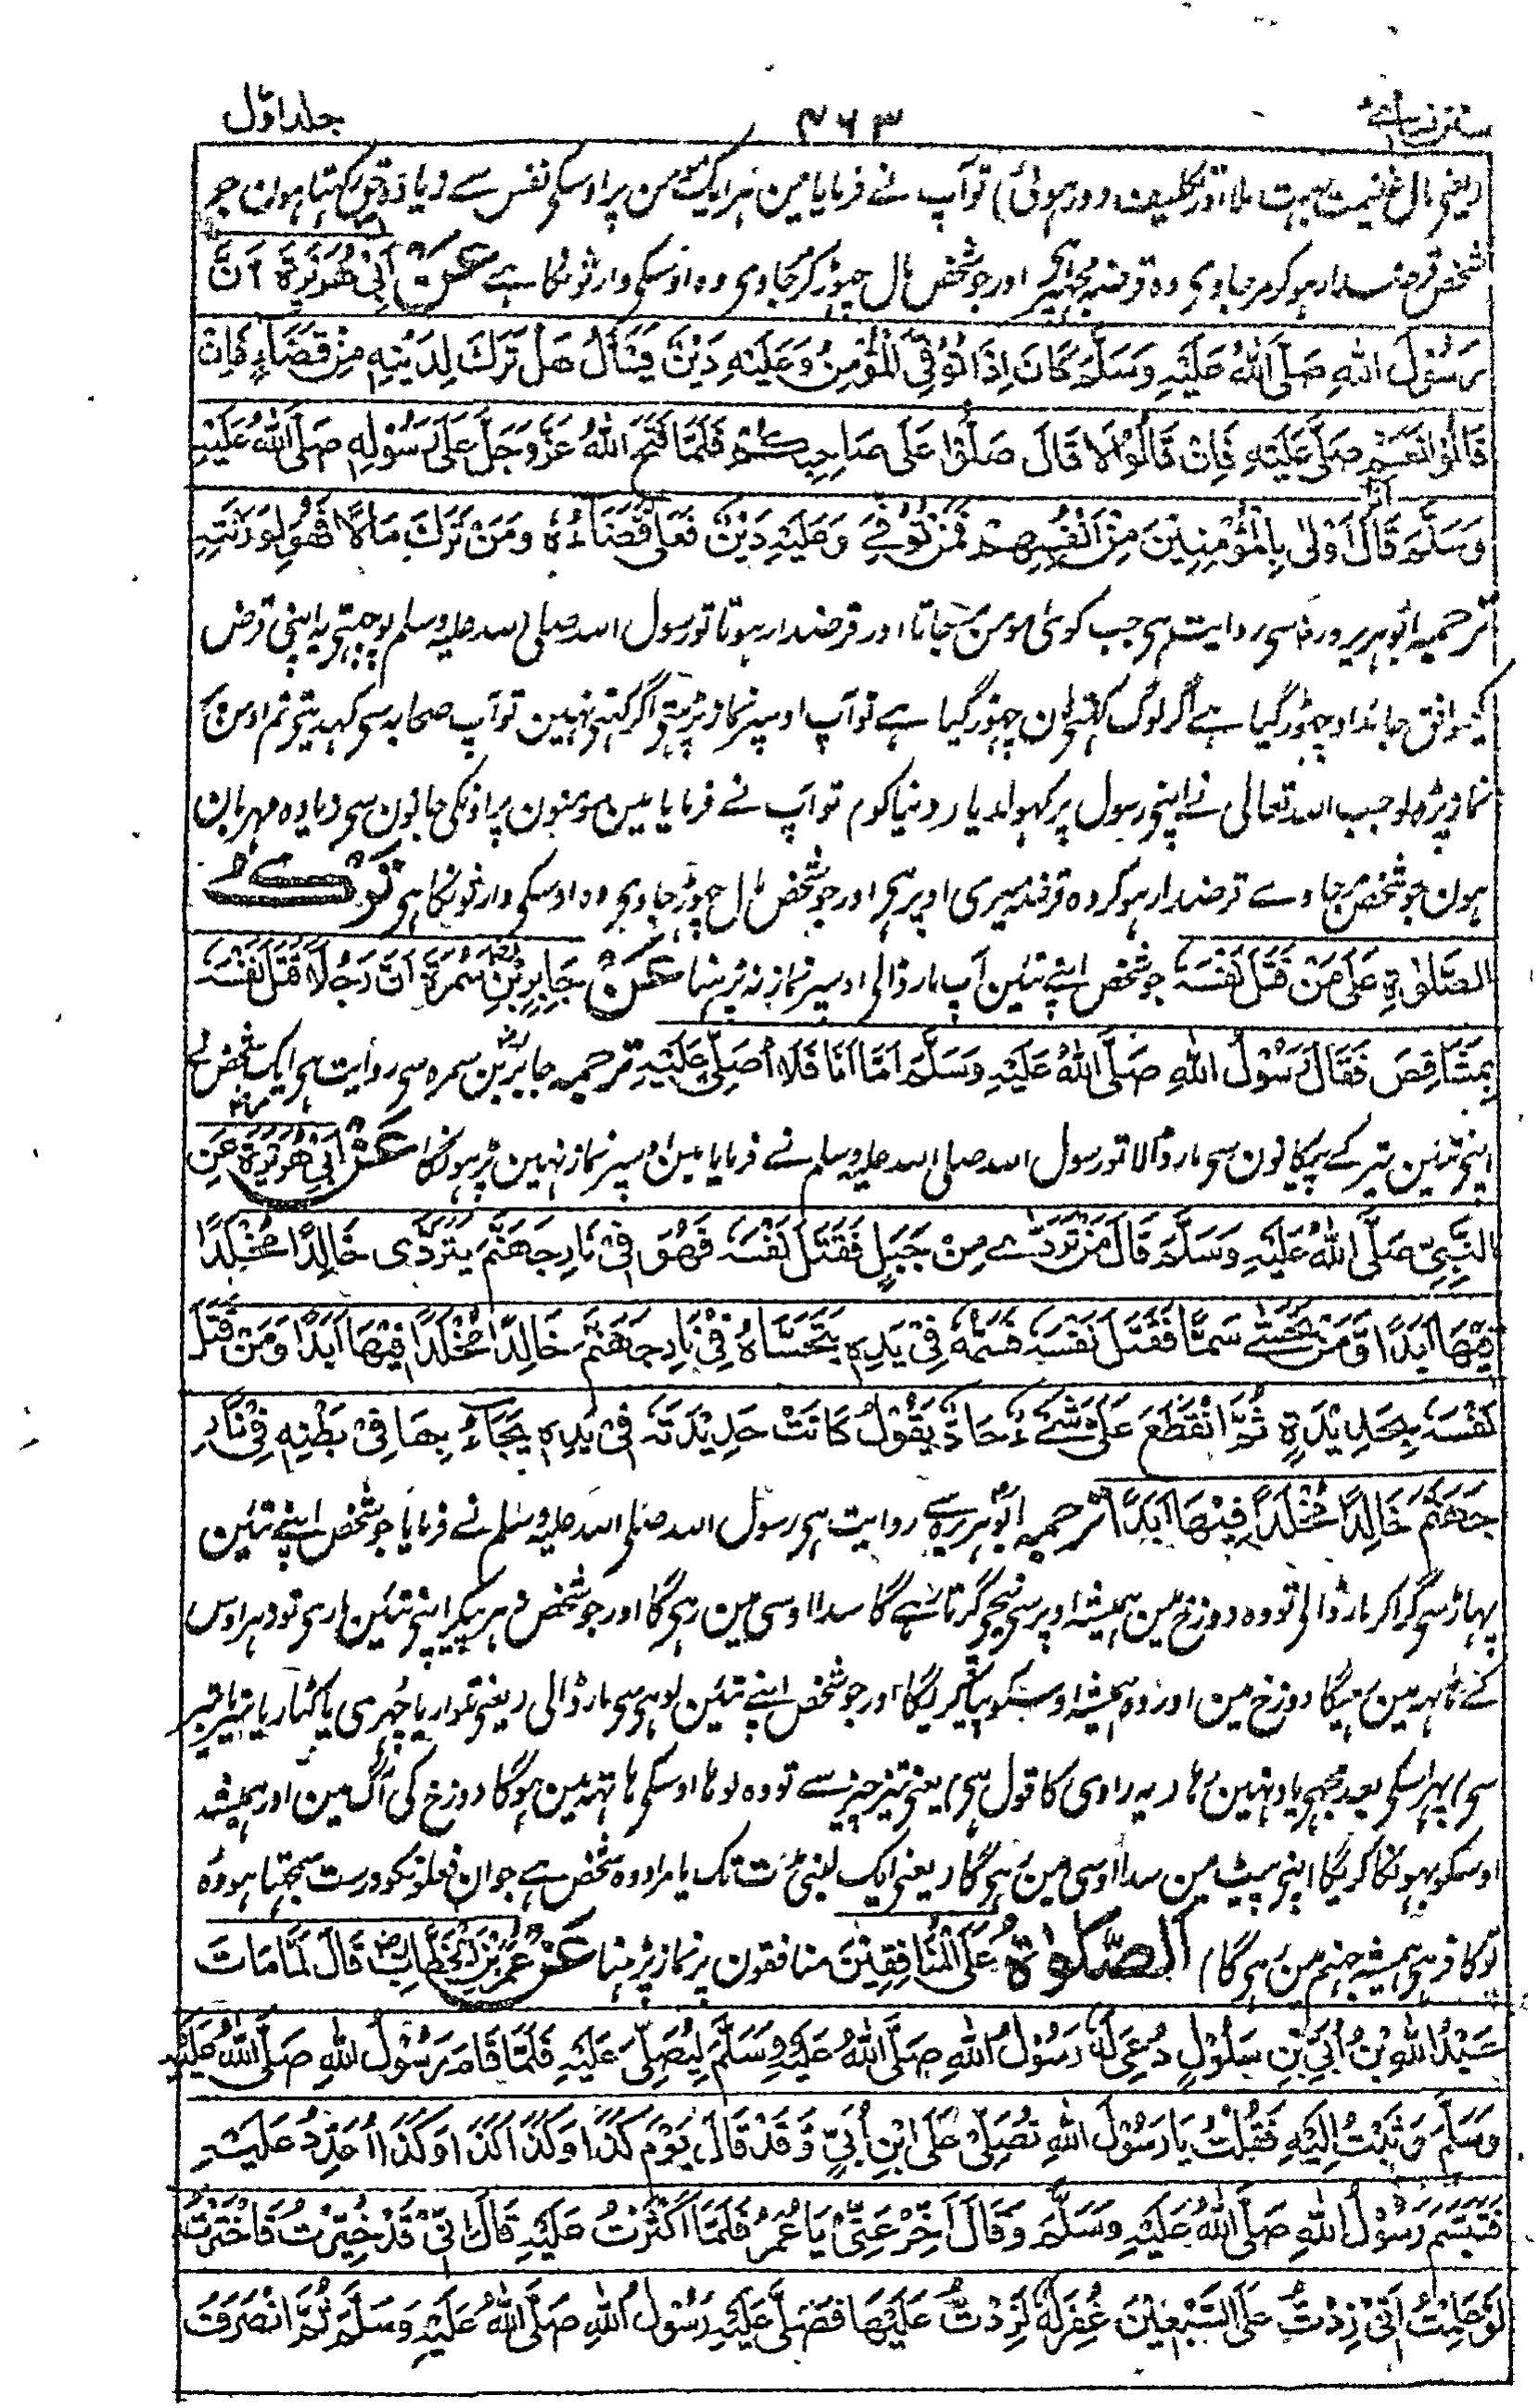 سنن نسائی ۴۶۳ جلد اول
(یعنی مال غنیمت بہت ملا اور تکلیف دور ہوئی) تو آپ نے فرمایا مین ہر ایک مومن پر اوسکی نفس سے زیادہ حق رکہتا ہون جو
شخص قرضدار ہو کر مر جاوی وہ قرضہ مجہپر اور جو شخص مال چہوڑ کر جاوی وہ اوسکی وارثونکا ہے عَنْ اَبِیْ هُرَیْرَةَ اَنَّ
رَسُوْلَ اللهِ صَلَّی اللهُ عَلَیْهِ وَسَلَّمَ کَانَ اِذَا تُوُفِّیَ الْمُؤْمِنُ وَعَلَیْهِ دَیْنٌ فَیَسْأَلُ هَلْ تَرَكَ لِدَیْنِهِ مِنْ قَضَاءٍ فَاِنْ
قَالُوْا نَعَمْ صَلَّی عَلَیْهِ فَاِنْ قَالُوْا لَا قَالَ صَلُّوْا عَلَی صَاحِبِکُمْ فَلَمَّا فَتَحَ اللهُ عَزَّوَجَلَّ عَلَی رَسُوْلِهِ صَلَّی اللهُ عَلَیْهِ
وَسَلَّمَ قَالَ اَنَا اَوْلٰی بِالْمُؤْمِنِیْنَ مِنْ اَنْفُسِهِمْ فَمَنْ تُوُفِّیَ وَعَلَیْهِ دَیْنٌ فَعَلَیَّ قَضَاءُهُ وَمَنْ تَرَكَ مَالًا فَهُوَ لِوَرَثَتِهِ
ترجمہ ابوہریرہ رض سی روایت ہی جب کوئی مومن مرجاتا اور قرضدار ہوتا تو رسول اللہ صلی اللہ علیہ وسلم پوچہتی یہ اپنی قرض
کیموافق جائداد چہوڑ گیا ہے اگر لوگ کہتی ہان چہوڑ گیا ہے تو آپ اوسپر نماز پڑہتی اگر کہتی نہین تو آپ صحابہ سی کہدیتی تم اوس پر
نماز پڑہ لو جب اللہ تعالی نے اپنی رسول پر کہولدیا (دنیا کو) تو آپ نے فرمایا مین مومنون پر اونکی جانون سی زیادہ مہربان
ہون جو شخص مرجاوے قرضدار ہو کر وہ قرضہ میری اوپر ہی اور جو شخص مال چہوڑ جاوی وہ اوسکی وارثونکا ہی تَرْكُ
الصَّلٰوةِ عَلٰی مَنْ قَتَلَ نَفْسَهُ جو شخص اپنے تئین آپ مار ڈالی اوسپر نماز نہ پڑہنا عَنْ جَابِرِ بْنِ سَمُرَةَ اَنَّ رَجُلًا قَتَلَ نَفْسَهُ
بِمَشَاقِصَ فَقَالَ رَسُوْلُ اللهِ صَلَّی اللهُ عَلَیْهِ وَسَلَّمَ اَمَّا اَنَا فَلَا اُصَلِّیْ عَلَیْهِ ترجمہ جابر بن سمرہ سی روایت ہی ایک شخص نے
اپنی تئین تیر کے پیکانون سی مار ڈالا تو رسول اللہ صلی اللہ علیہ وسلم نے فرمایا مین اوسپر نماز نہین پڑہونگا عَنْ اَبِیْ هُرَیْرَةَ عَنِ
النَّبِیِّ صَلَّی اللهُ عَلَیْهِ وَسَلَّمَ قَالَ مَنْ تَرَدّٰی مِنْ جَبَلٍ فَقَتَلَ نَفْسَهُ فَهُوَ فِیْ نَارِ جَهَنَّمَ یَتَرَدّٰی خَالِدًا مُخَلَّدًا
فِیْهَا اَبَدًا وَّمَنْ تَحَسّٰی سَمًّا فَقَتَلَ نَفْسَهُ فَسَمُّهُ فِیْ یَدِهِ یَتَحَسَّاهُ فِیْ نَارِ جَهَنَّمَ خَالِدًا مُخَلَّدًا فِیْهَا اَبَدًا وَمَنْ قَتَلَ
نَفْسَهُ بِحَدِیْدَةٍ ثُمَّ انْقَطَعَ عَلَیَّ شَیْءٌ حَادٌّ یَقُوْلُ کَانَتْ حَدِیْدَتُهُ فِیْ یَدِهِ یَجَاءُ بِهَا فِیْ بَطْنِهِ فِیْ نَارِ
جَهَنَّمَ خَالِدًا مُخَلَّدًا فِیْهَا اَبَدًا ترجمہ ابوہریرہ سے روایت ہی رسول اللہ صلی اللہ علیہ وسلم نے فرمایا جو شخص اپنے تئین
پہاڑ سی گرا کر مار ڈالی تو وہ دوزخ مین ہمیشہ اوپر سی نیچی گرتا رہے گا سدا اوسی مین رہی گا اور جو شخص زہر پیکر اپنی تئین ماری تو زہر اوس
کے ہاتہہ مین رہیگا دوزخ مین اور وہ ہمیشہ اوسکو پیا کریگا اور جو شخص اپنے تئین لوہی سی مار ڈالی (یعنی تلوار یا چہری یا کٹار یا خنجر یا تیر
سی) پہر اسکی بعد مجہی یاد نہین رہا (یہ راوی کا قول ہی) یعنی تیز چیز سے تو وہ لوہا اوسکی ہاتہہ مین ہوگا دوزخ کی آگ مین اور ہمیشہ
اوسکو بہونکا کریگا اپنی پیٹ مین سدا اوسی مین رہی گا (یعنی ایک لنبی مدت تک یا مراد وہ شخص ہے جو ان فعلونکو درست سمجہتا ہو وہ
تو کافر ہی ہمیشہ جہنم مین رہی گا) اَلصَّلٰوةُ عَلَی الْمُنَافِقِیْنَ منافقون پر نماز پڑہنا عَنْ عُمَرَ بْنِ الْخَطَّابِ رض قَالَ لَمَّا مَاتَ
عَبْدُ اللهِ بْنُ اُبَیِّ بْنِ سَلُوْلٍ دُعِیَ لَهُ رَسُوْلُ اللهِ صَلَّی اللهُ عَلَیْهِ وَسَلَّمَ لِیُصَلِّیَ عَلَیْهِ فَلَمَّا قَامَ رَسُوْلُ اللهِ صَلَّی اللهُ عَلَیْهِ
وَسَلَّمَ وَثَبْتُ اِلَیْهِ فَقُلْتُ یَا رَسُوْلَ اللهِ تُصَلِّیْ عَلَی ابْنِ اُبَیٍّ وَّقَدْ قَالَ یَوْمَ کَذَا وَکَذَا کَذَا وَکَذَا اُعَدِّدُ عَلَیْهِ
فَتَبَسَّمَ رَسُوْلُ اللهِ صَلَّی اللهُ عَلَیْهِ وَسَلَّمَ وَقَالَ اَخِّرْ عَنِّیْ یَا عُمَرُ فَلَمَّا اَکْثَرْتُ عَلَیْهِ قَالَ اِنِّیْ قَدْ خُیِّرْتُ فَاخْتَرْتُ
لَوْ عَلِمْتُ اَنِّیْ زِدْتُ عَلَی السَّبْعِیْنَ غُفِرَ لَهُ لَزِدْتُ عَلَیْهَا فَصَلَّی عَلَیْهِ رَسُوْلُ اللهِ صَلَّی اللهُ عَلَیْهِ وَسَلَّمَ ثُمَّ انْصَرَفَ